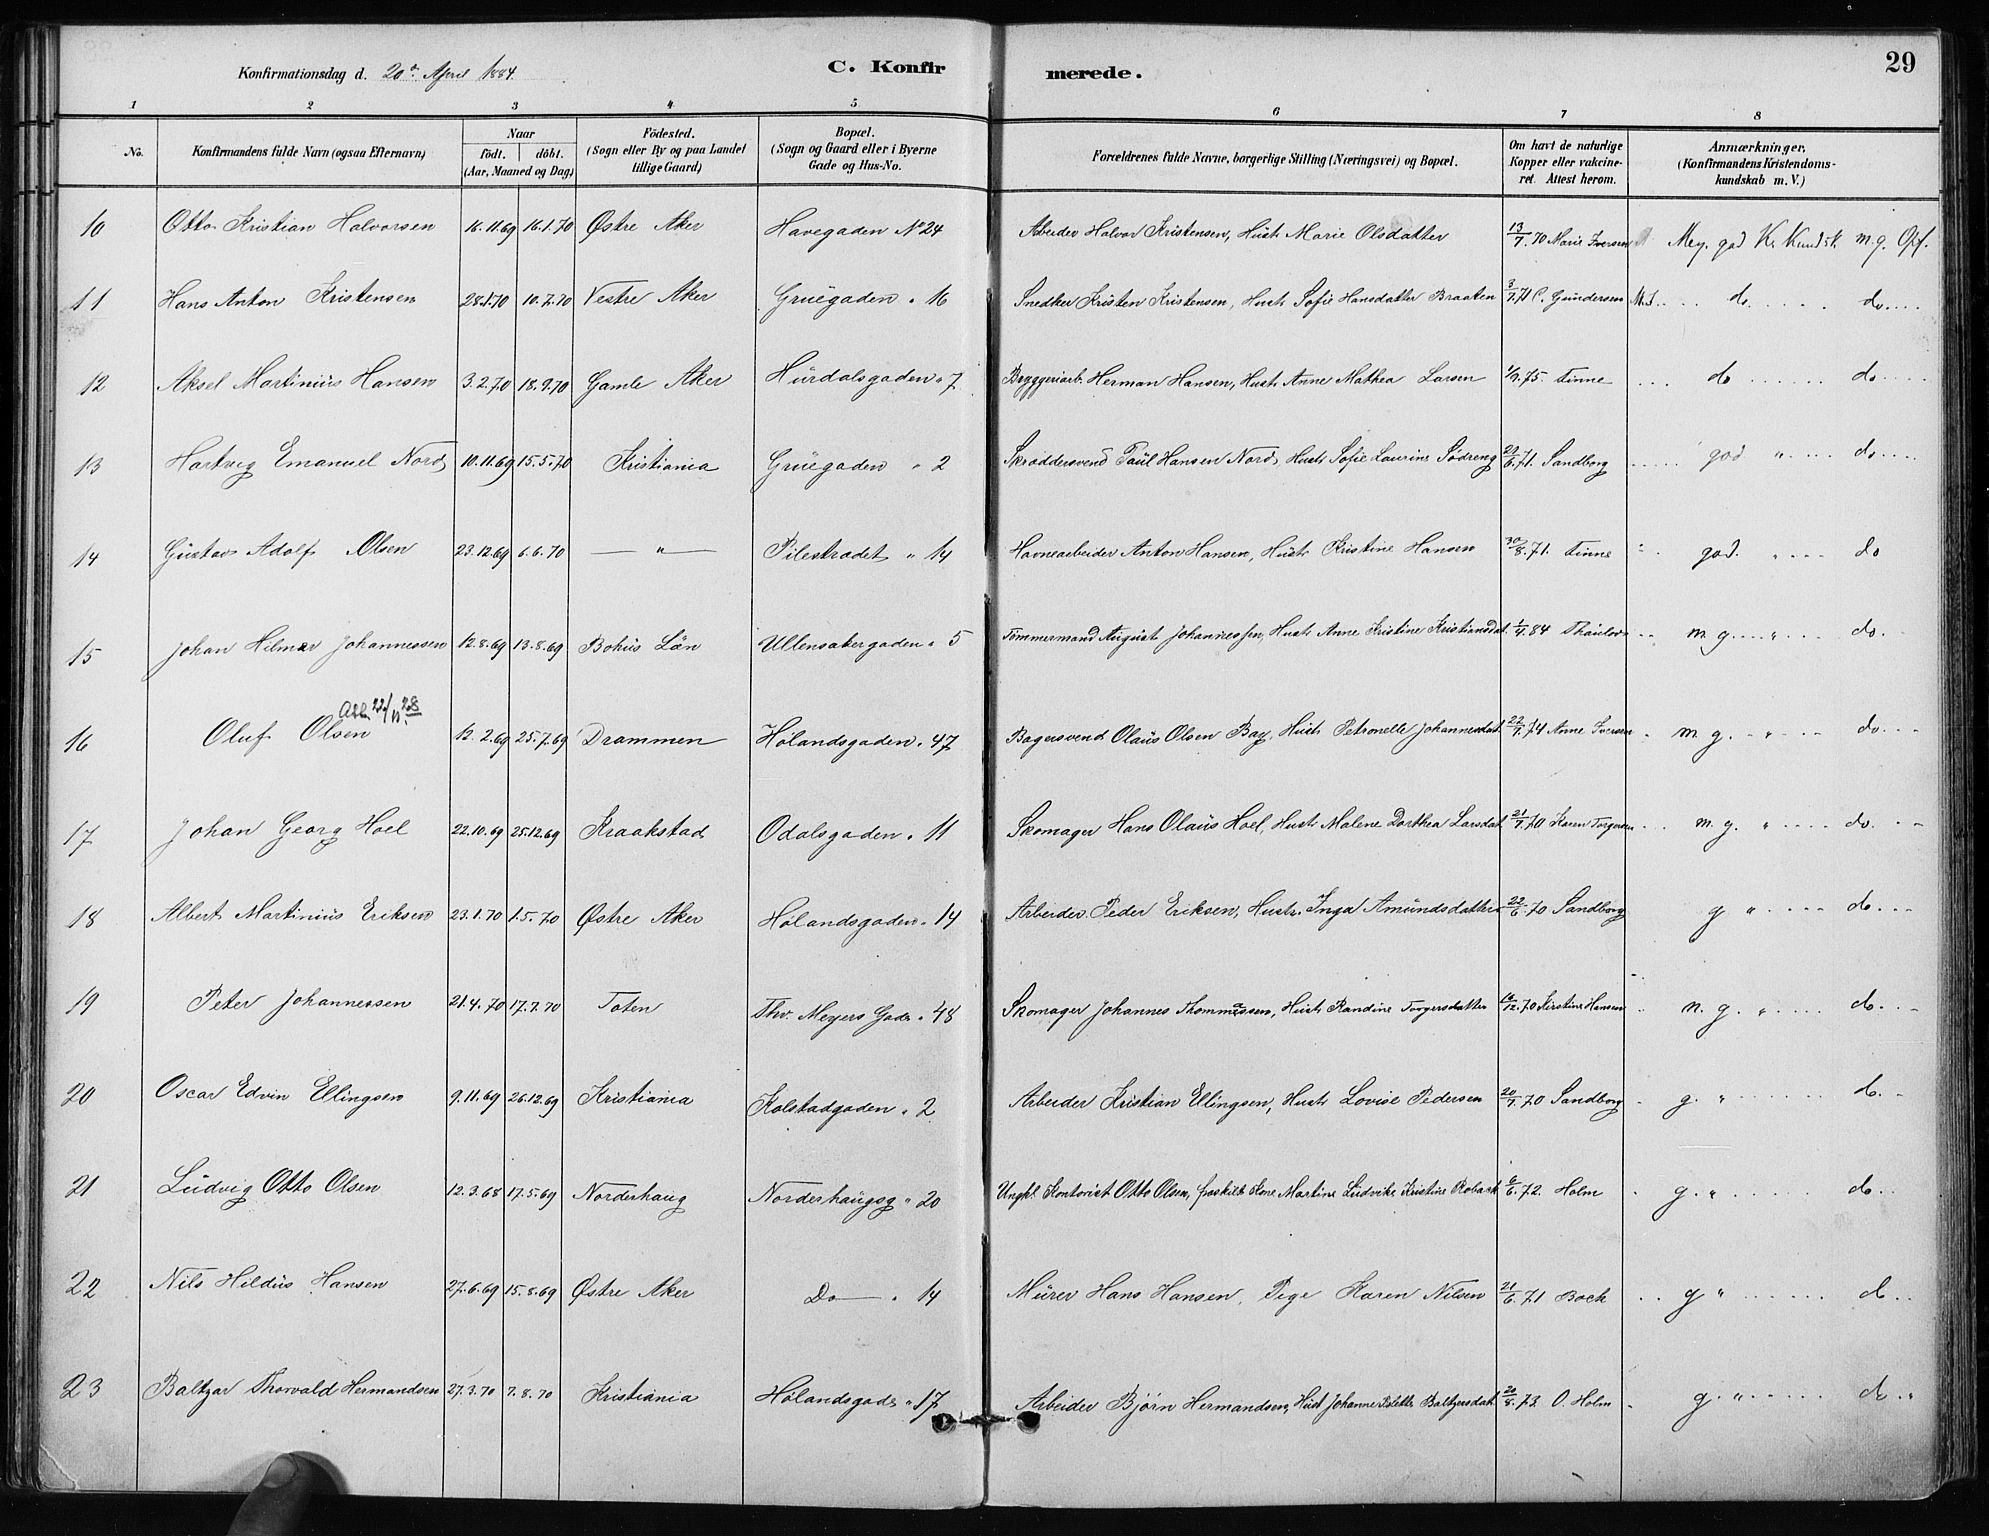 Konfirmationsdag d. 20de April 1884.
C. Konfirmerede.
29
1 2 3 4 5 6 7 8
No. Konfirmandens fulde Navn (ogsaa Efternavn) Naar födt. döbt. (Aar, Maaned og Dag) Födested. (Sogn eller By og paa Landet tillige Gaard) Bopæl. (Sogn og Gaard eller i Byerne Gade og Hus-No. Forældrenes fulde Navne, borgerlige Stilling (Næringsvei) og Bopæl. Om havt de naturlige Kopper eller vakcineret. Attest herom. Anmærkninger, (Konfirmandens Kristendomskundskab m.V.)
10 Otto Kristian Halvorsen 16.11.69 16.1.70 Østre Aker Havegaden No 24 Arbeider Halvor Kristensen, Hust. Marie Olsdatter 13/7.70 Marie Iversen Meg. god Kr. Kundsk. m.g. Opf.
11 Hans Anton Kristensen 28.1.70 10.7.70 Vestre Aker Grüegaden " 16 Snedker Kristen Kristensen, Hust. Sofie Hansdatter Braaten 3/7.71 C. Gundersen do. do.
12 Aksel Martinius Hansen 3.2.70 18.9.70 Gamle Aker Hurdalsgaden " 7 Bryggeriarb. Herman Hansen, Hust. Anne Mathea Larsen 1/9.75. Finne do do.
13 Hartvig Emanuel Nord 10.11.69 15.5.70 Kristiania Grüegaden " 2 Skræddersvend Paul Hansen Nord, Hust. Sofie Laurine Södreng 22/6.71. Sandborg god " do.
14 Gustav Adolf Olsen 23.12.69 6.6.70 — " — Pilestrædet " 14 Havnearbeider Anton Hansen, Hust. Kristine Hansen 30/8.71. Finne god. " do
15 Johan Hilmar Johannessen 12.8.69 13.8.69 Bohus Län Ullensakergaden " 5 Tömmermand August Johannessen, Hust. Anne Kristine Kristiansdat. 1/4.84 Thaulow m.g. " do.
16 Oluf Olsen Att. 22/11 28 13.2.69 25.7.69 Drammen Hølandsgaden " 47 Bagersvend Olaüs Olsen Bay, Hust. Petronelle Johannesdat. 22/7.74 Anne Iversen m.g. " do.
17 Johan Georg Hoel 22.10.69 25.12.69 Kraakstad Odalsgaden " 11 Skomager Hans Olaüs Hoel, Hust. Malene Dorthea Larsdat. 21/7.70 Karen Torgersen m.g. " do.
18 Albert Martinius Eriksen 23.1.70 1.5.70 Østre Aker Hølandsgaden " 14 Arbeider Peder Eriksen, Hust. Inga Amundsdatter 22/6.70 Sandborg g " do.
19 Peter Johannessen 21.4.70 17.7.70 Toten Thv. Meyers Gade " 48 Skomager Johannes Thommassen, Hust. Randine Torgersdatter 12.70 Kirstine Hansen m.g. " do.
20 Oscar Edvin Ellingsen 9.11.69 26.12.69 Kristiania Kolstadgaden " 2 Arbeider Kristian Ellingsen, Hust. Lovise Pedersen 20/7.70 Sandborg g. " do.
21 Ludvig Otto Olsen 12.3.68 17.5.69 Norderhaug Norderhaugsg " 20 Ungkl. Kontorist Otto Olsen, fraskilt Kone Martine Ludvike Kristine Roback 6.72. Holm g. " do.
22 Nils Hildus Hansen 27.6.69 15.8.69 Østre Aker Do — " 14 Mürer Hans Hansen, Pige Karen Nilsen 21/6.71 Bock g " do.
23 Baltzar Thorvald Hermandsen 27.3.70 7.8.70 Kristiania Hølandsgade " 17 Arbeider Bjørn Hermandsen, Hust Johanne Baltzersdat. 20/8.73. O. Holm g. " do.